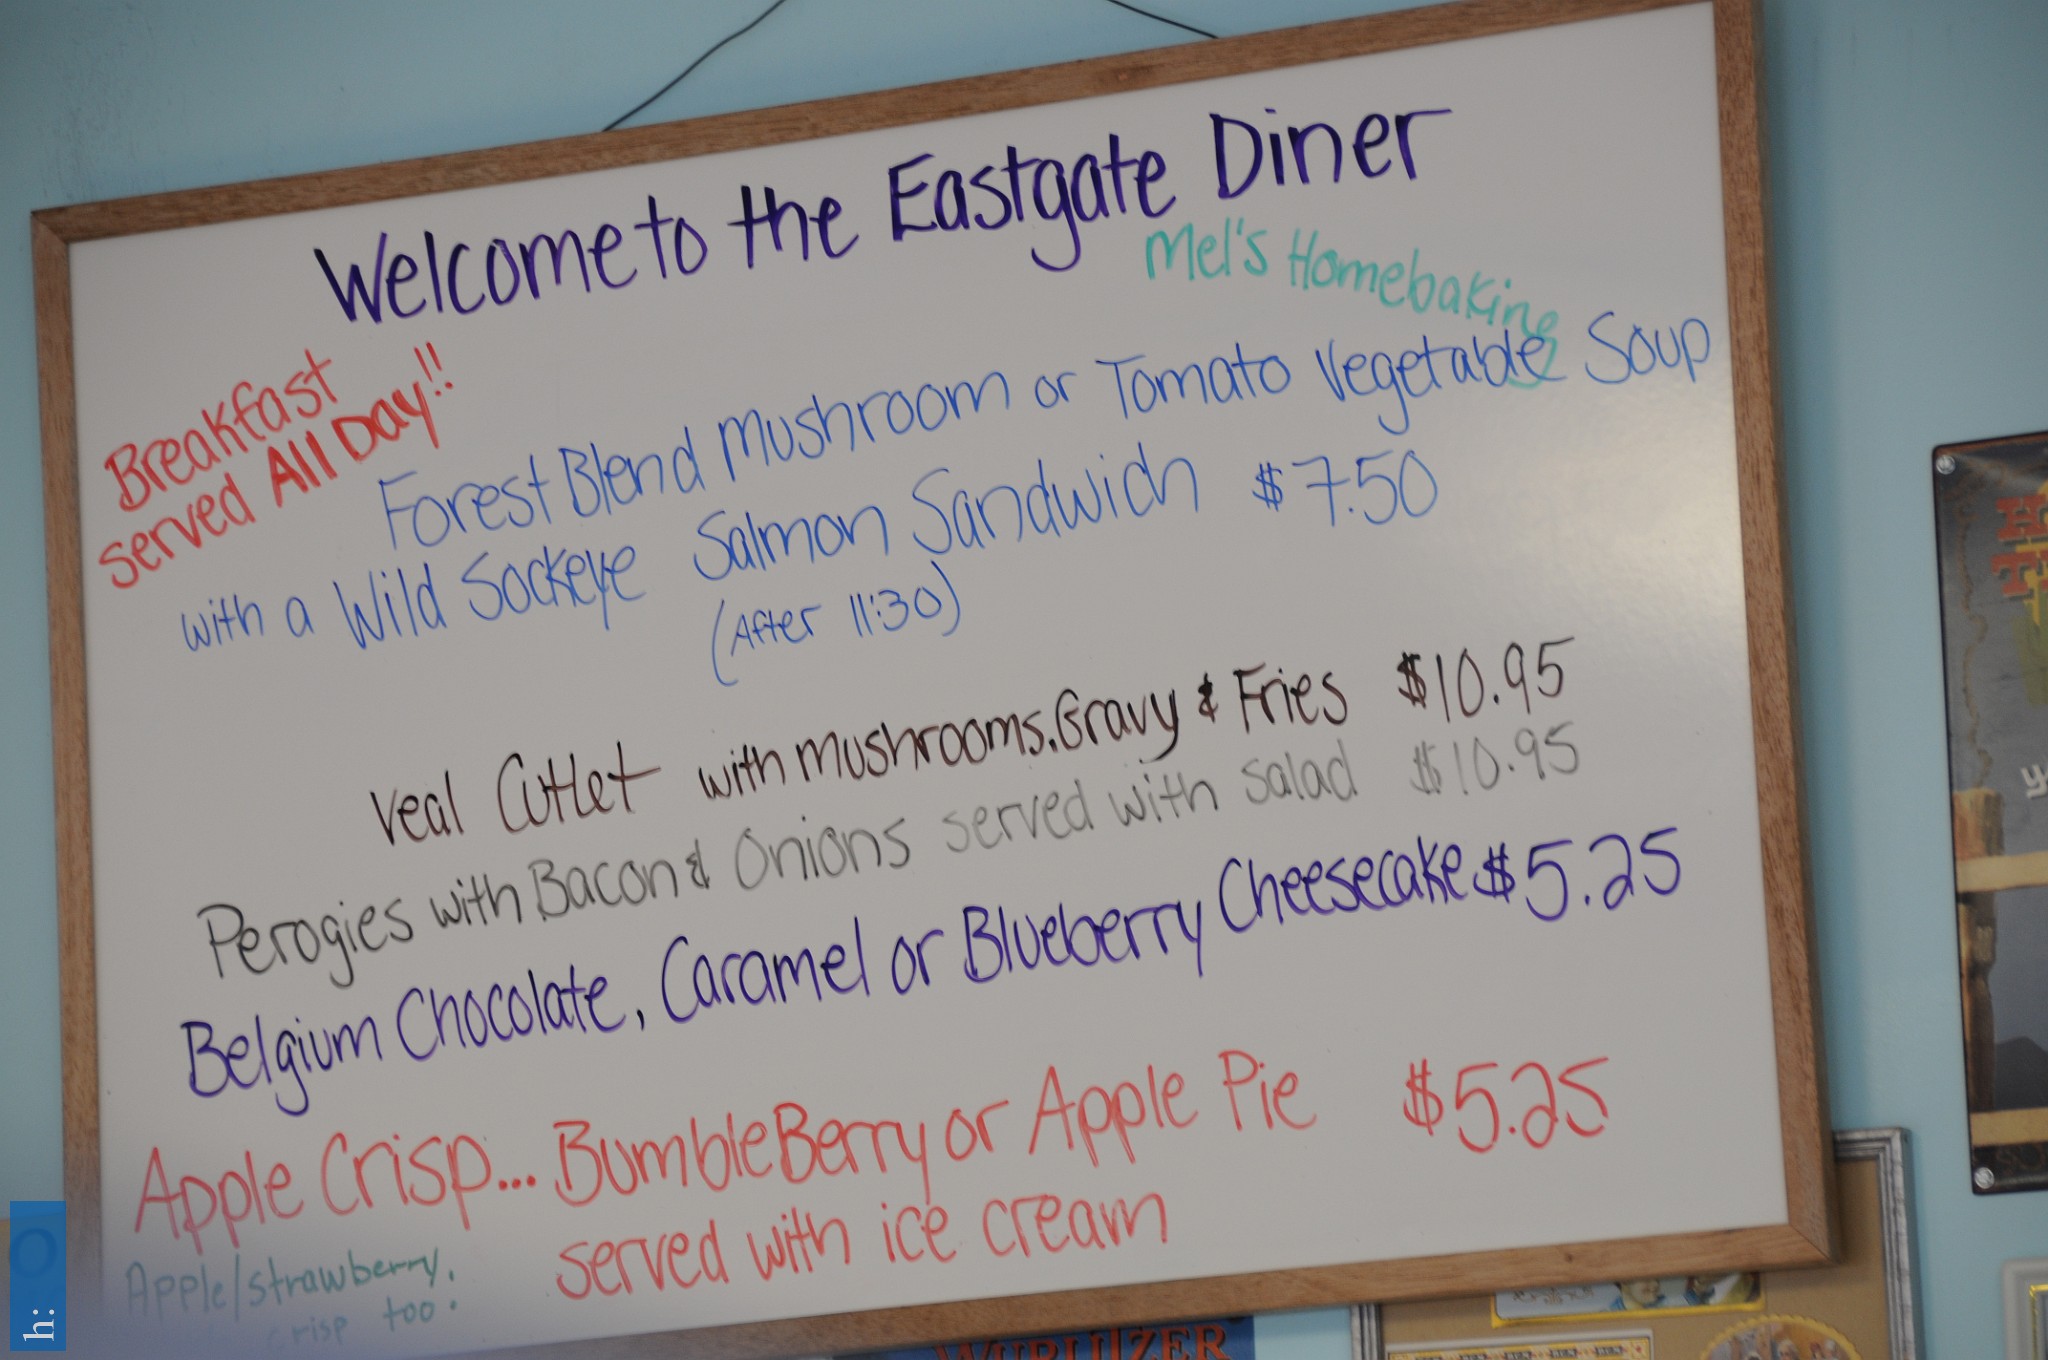 Welcome to the Eastgate Diner
Mel's Homebaking
Breakfast
served All Day!!
Forest Blend Mushroom or Tomato Vegetable Soup
with a Wild Sockeye Salmon Sandwich $7.50
(After 11:30)
Veal Cutlet with mushrooms.Gravy & Fries $10.95
Perogies with Bacon & Onions served with salad $10.95
Belgium Chocolate, Caramel or Blueberry Cheesecake $5.25
Apple Crisp... BumbleBerry or Apple Pie $5.25
served with ice cream
Apple/strawberry.
crisp too.
WURLITZER
h: